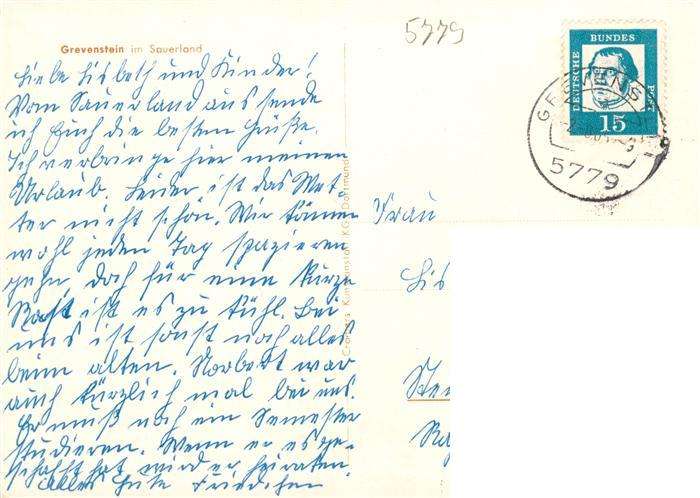 5779
Grevenstein im Sauerland
Liebe Lisbeth und Kinder!
Vom Sauerland aus sende
ich Euch die besten Grüße.
Ich verbringe hier meinen
Urlaub. Leider ist das Wet-
ter nicht schön. Wir können
wohl jeden Tag spazieren
gehn, doch für eine kurze
Rast ist es zu kühl. Bei
uns ist sonst noch alles
beim alten. Norbert war
auch kürzlich mal bei uns.
Er muß noch ein Semester
studieren. Wenn er es ge-
schafft hat, wird er heiraten.
Alles Gute Friedchen
Cramers Kunstanstalt KG, Dortmund
DEUTSCHE BUNDESPOST
15
5779
Frau
Lis